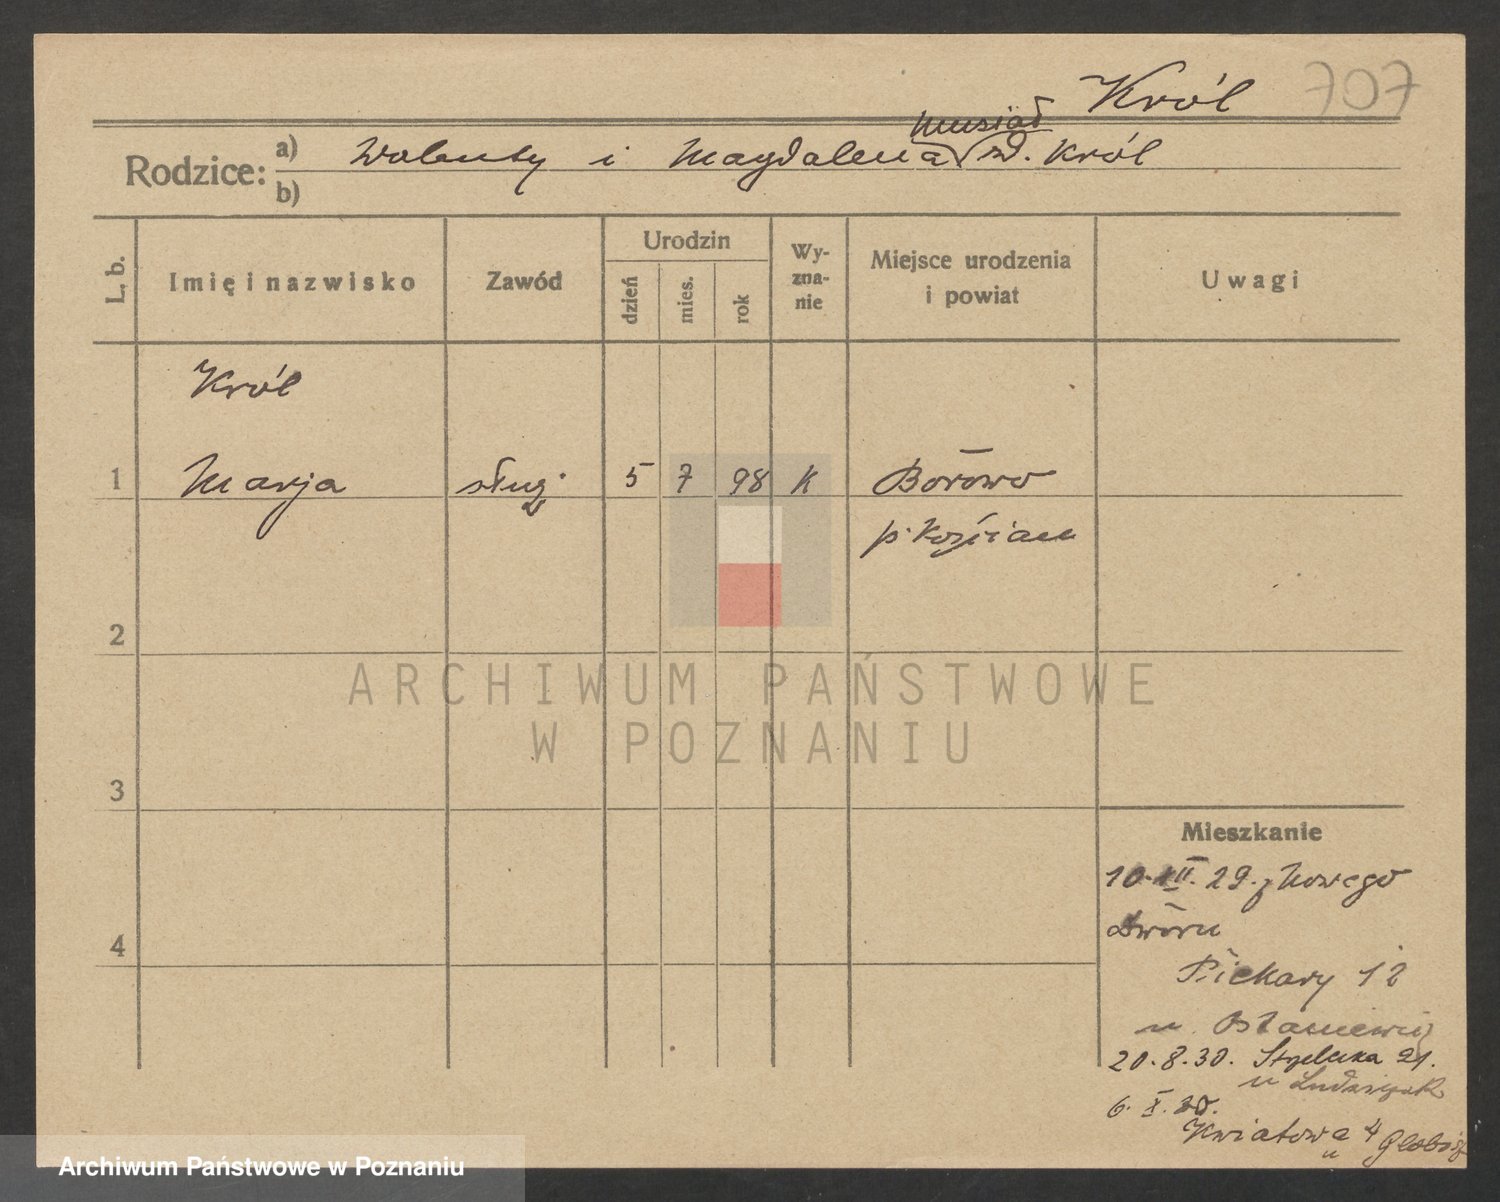 Król 707
musiał
Rodzice: a) Walenty i Magdalena zd. Król
b)
L. b. Imię i nazwisko Zawód Urodzin dzień mies. rok Wy-zna-nie Miejsce urodzenia i powiat Uwagi
Król
1 Marja służ. 5 7 98 K Borowo
p. Kościan
2
ARCHIWUM PAŃSTWOWE
W POZNANIU
3
Mieszkanie
10. XII. 29. z Nowego
4 Dworu
Piekary 12
u.
20.8.30. Strzelecka 21.
u Ludwiczak
6. X. 30.
Kwiatowa 4
u
Archiwum Państwowe w Poznaniu